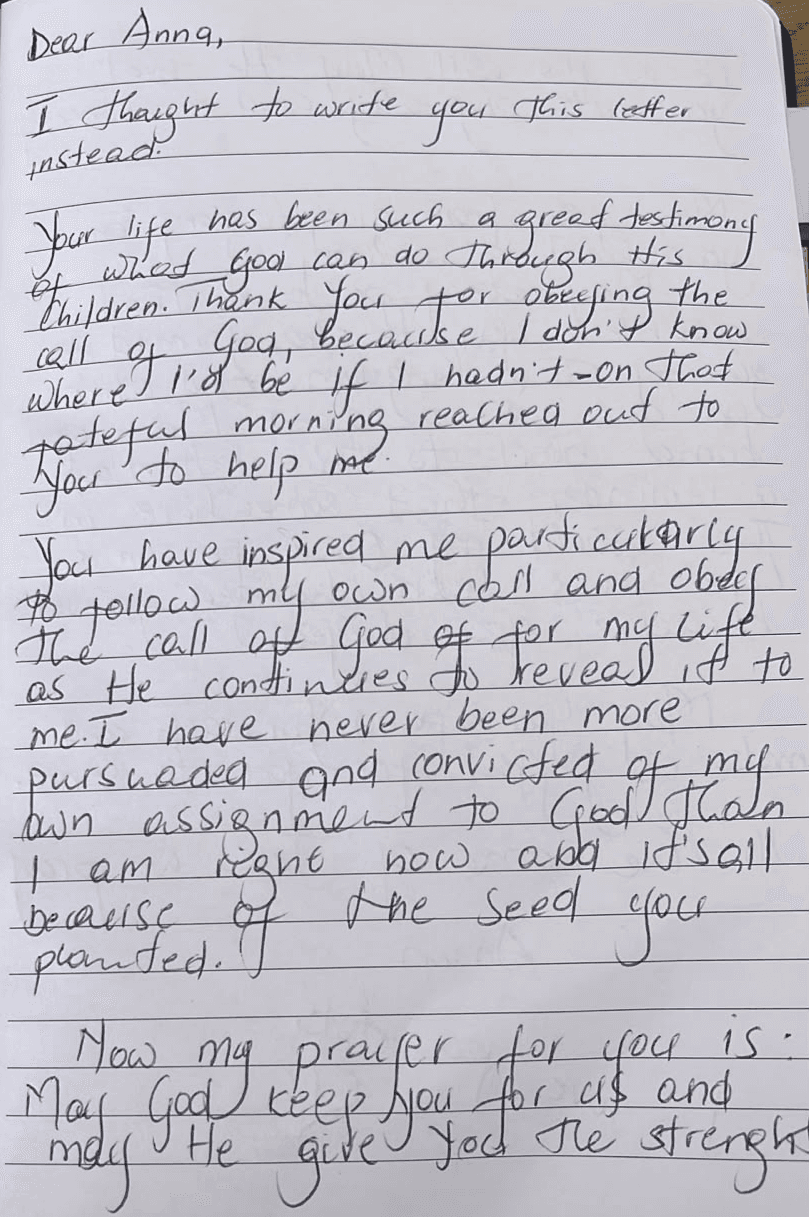 Dear Anna,
I thought to write you this letter
instead.
Your life has been such a great testimony
of what God can do through His
Children. Thank you for obeying the
call of God, because I don't know
where I'd be if I hadn't - on that
fateful morning reached out to
you to help me.
You have inspired me particularly
to follow my own call and obey
the call of God of for my life
as He continues to reveal it to
me. I have never been more
pursuaded and convicted of my
own assignment to God than
I am right now and it's all
because of the seed you
planted.
Now my prayer for you is:
May God keep you for us and
may He give you the strenght